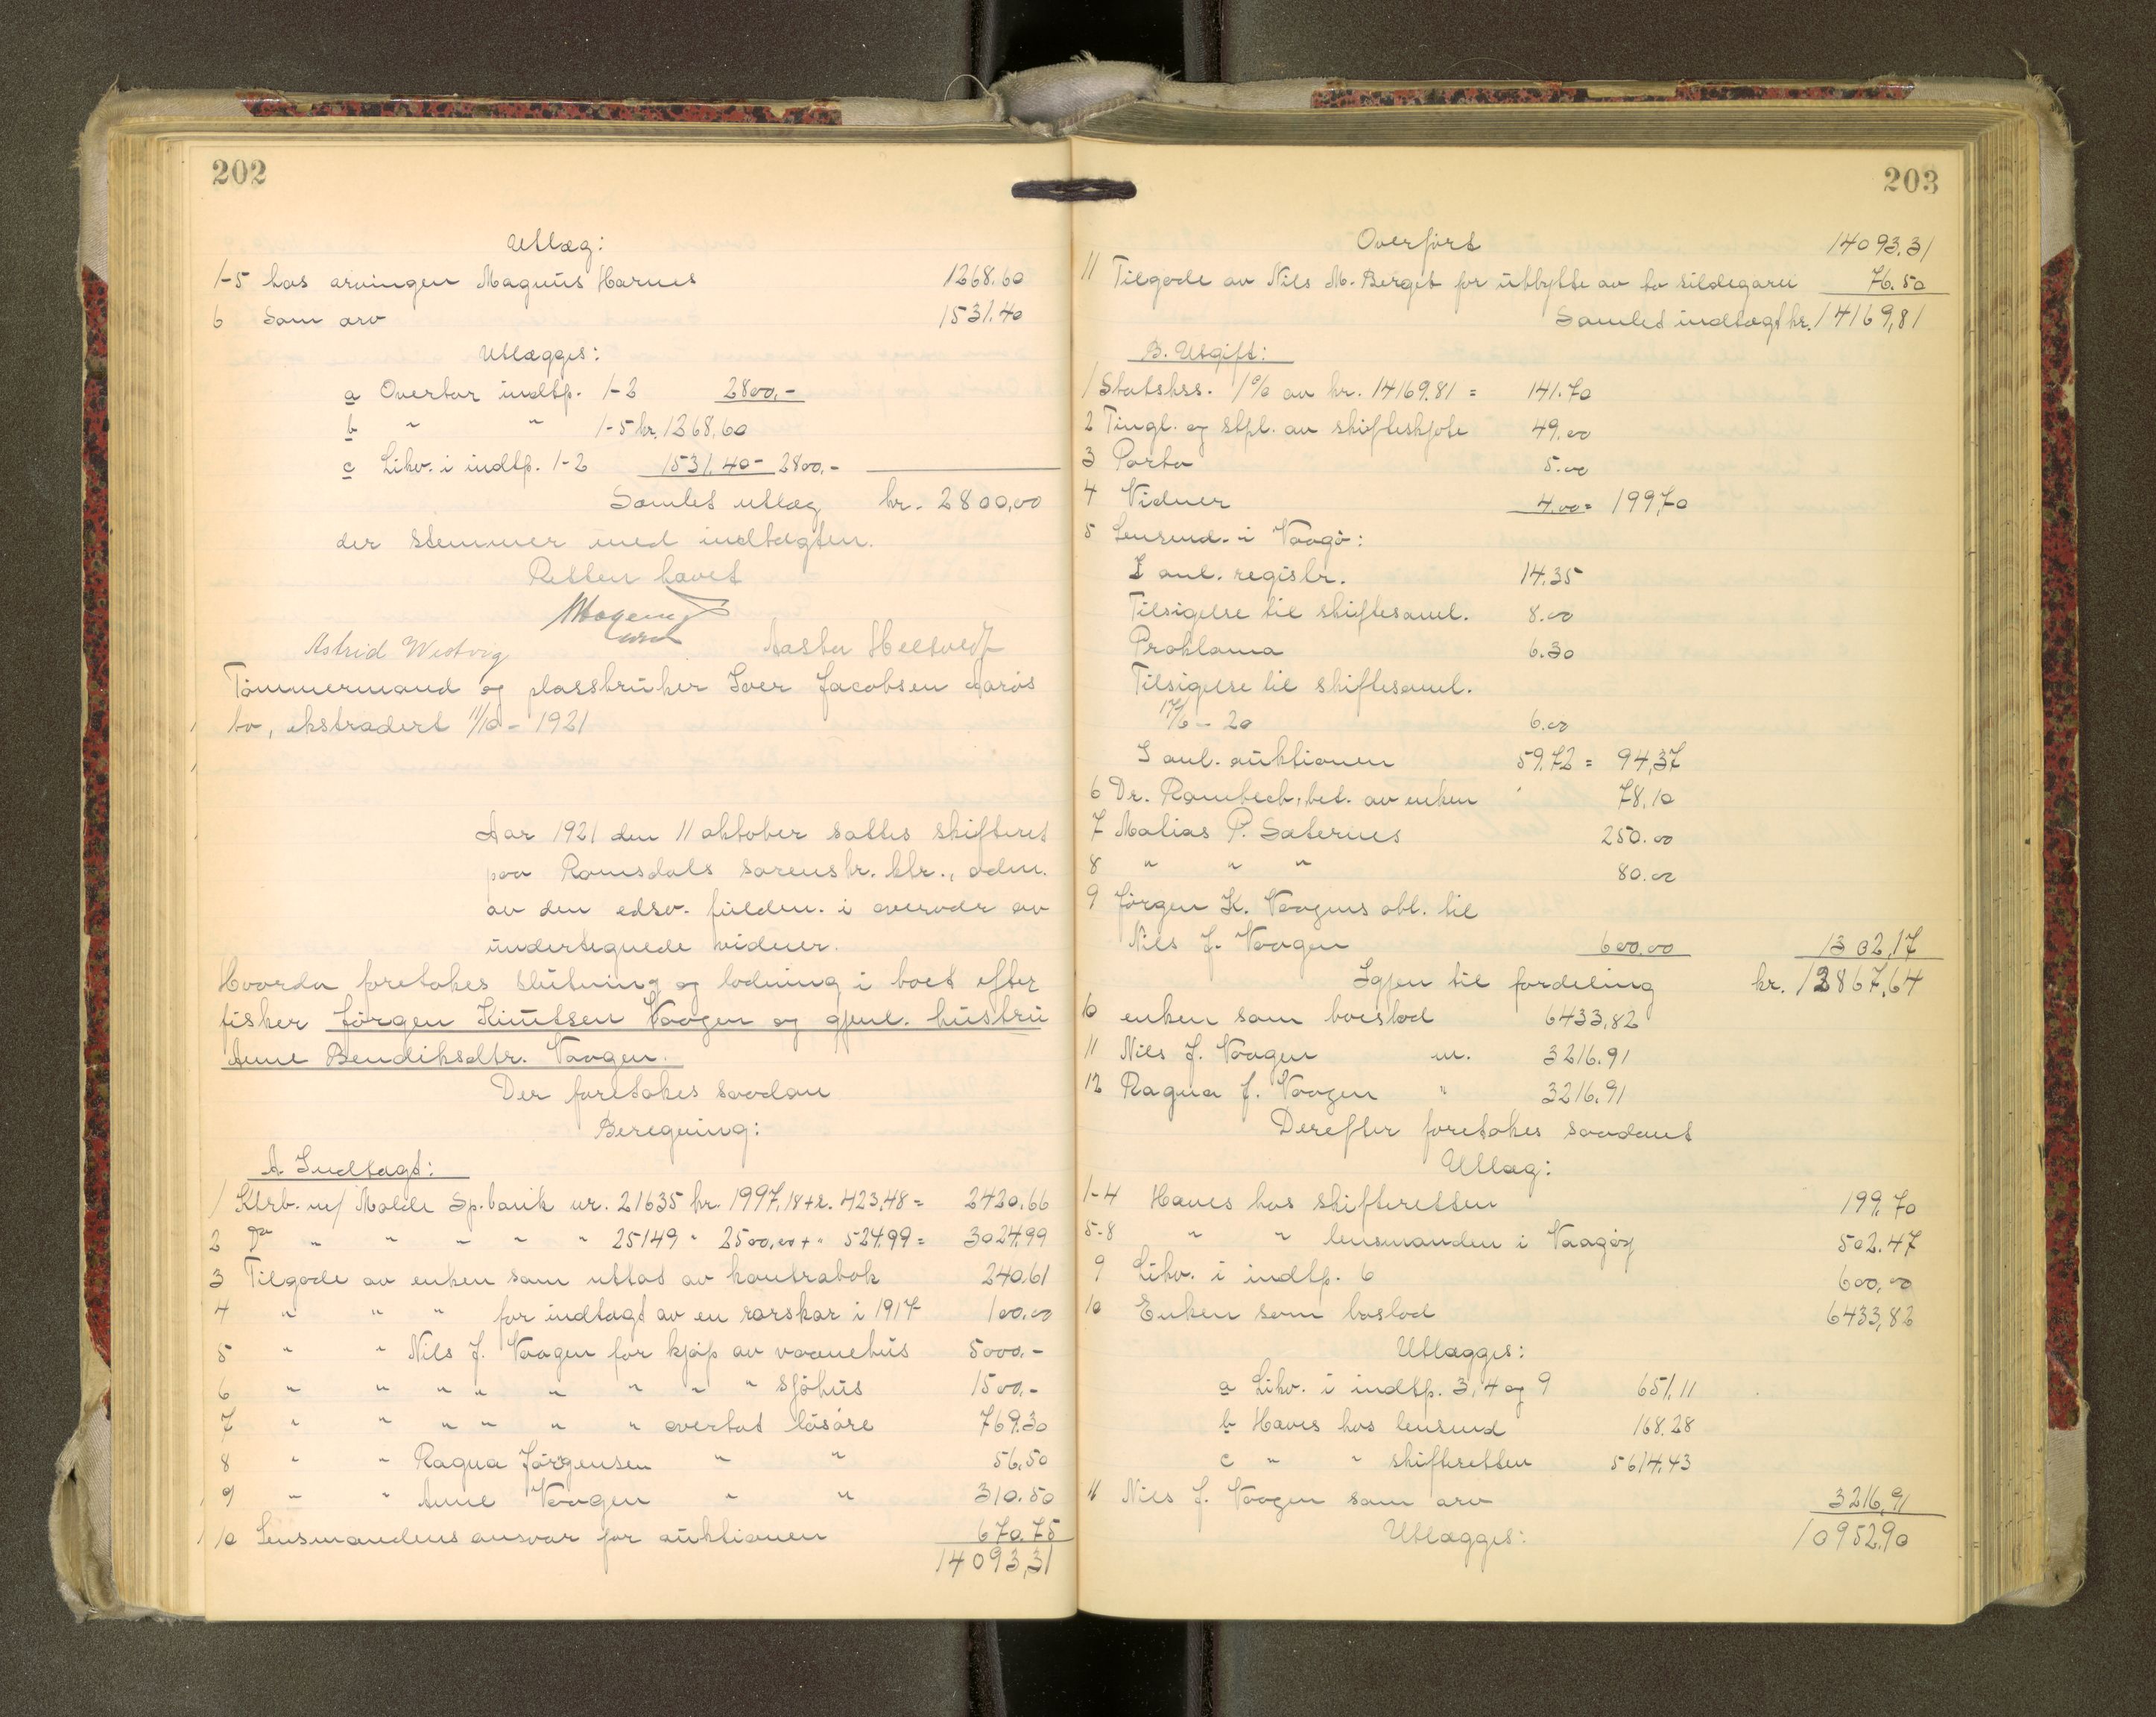 202
Utlæg:
1-5 hos arvingen Magnus Harnes 1268.60
6 Som arv 1531.40
Utlægges:
a Overtar indtp. 1-2 2800,-
b " " 1-5 kr. 1268,60
c Likv. i indtp. 1-2 1531,40 - 2800,-
Samlet utlæg kr. 2800,00
der stemmer med indtægten.
Retten hævet
Astrid Westvig Aasta Heltvedt
Tømmermand og plassbruker Iver Jacobsen Aarös
bo, ekstradert 11/10 - 1921
Aar 1921 den 11 oktober sattes skifteret
paa Romsdals sorenskr. ktr., adm.
av den edsv. fuldm. i overvær av
undertegnede vidner.
Hvorda foretokes slutning og lodning i boet efter
fisker Jörgen Knutsen Vaagen og gjenl. hustru
Anne Bendiksdtr. Vaagen.
Der foretokes saadan
Beregning:
A Indtægt:
1 Ktrb. m/ Molde Sp.bank nr. 21635 kr. 1997,18 + r. 423,48 = 2420,66
2 Do " " " " " 25149 " 2500,00 + " 524,99 = 3024,99
3 Tilgode av enken som uttat av kontrabok 240,61
4 " " " for indtægt av en rorskar i 1917 100,00
5 " " Nils J. Vaagen for kjöp av vaanehus 5000,-
6 " " " " " " " " sjöhus 1500,-
7 " " " " " " overtat lösöre 769.30
8 " " Ragna Jörgensen " " 56,50
9 " " Anne Vaagen " " 310.50
10 Lensmandens ansvar for auktionen 670.75
14093,31
203
Overfört 14093,31
11 Tilgode av Nils M. Berget for utbytte av to sildegarn 76.50
Samlet indtægt kr. 14169,81
B. Utgift:
1 Statskss. 1% av kr. 14169.81 = 141.70
2 Tingl. og stpl. av skifteskjöte 49,00
3 Porto 5.00
4 Vidner 4.00 = 199,70
5 Lensmd. i Vaagö:
I anl. registr. 14.35
Tilsigelse til skiftesaml. 8.00
Proklama 6.30
Tilsigelse til skiftesaml.
17/6 - 20 6.00
I anl. auktionen 59.72 = 94,37
6 Dr. Rambech, bet. av enken 78,10
7 Matias P. Sæternes 250.00
8 " " " 80.00
9 Jörgen K. Vaagens obl. til
Nils J. Vaagen 600,00 1302,17
Igjen til fordeling kr. 12867,64
10 enken som boeslod 6433,82
11 Nils J. Vaagen m. 3216.91
12 Ragna J. Vaagen " 3216.91
Derefter foretokes saadant
Utlæg:
1-4 Haves hos skifteretten 199,70
5-8 " " lensmanden i Vaagöy 502.47
9 Likv. i indtp. 6 600,00
10 Enken som boslod 6433,82
Utlægges:
a Likv. i indtp. 3, 4 og 9 651,11
b Haves hos lensmd 168.28
c " " skifteretten 5614.43
11 Nils J. Vaagen som arv 3216,91
Utlægges: 10952,90